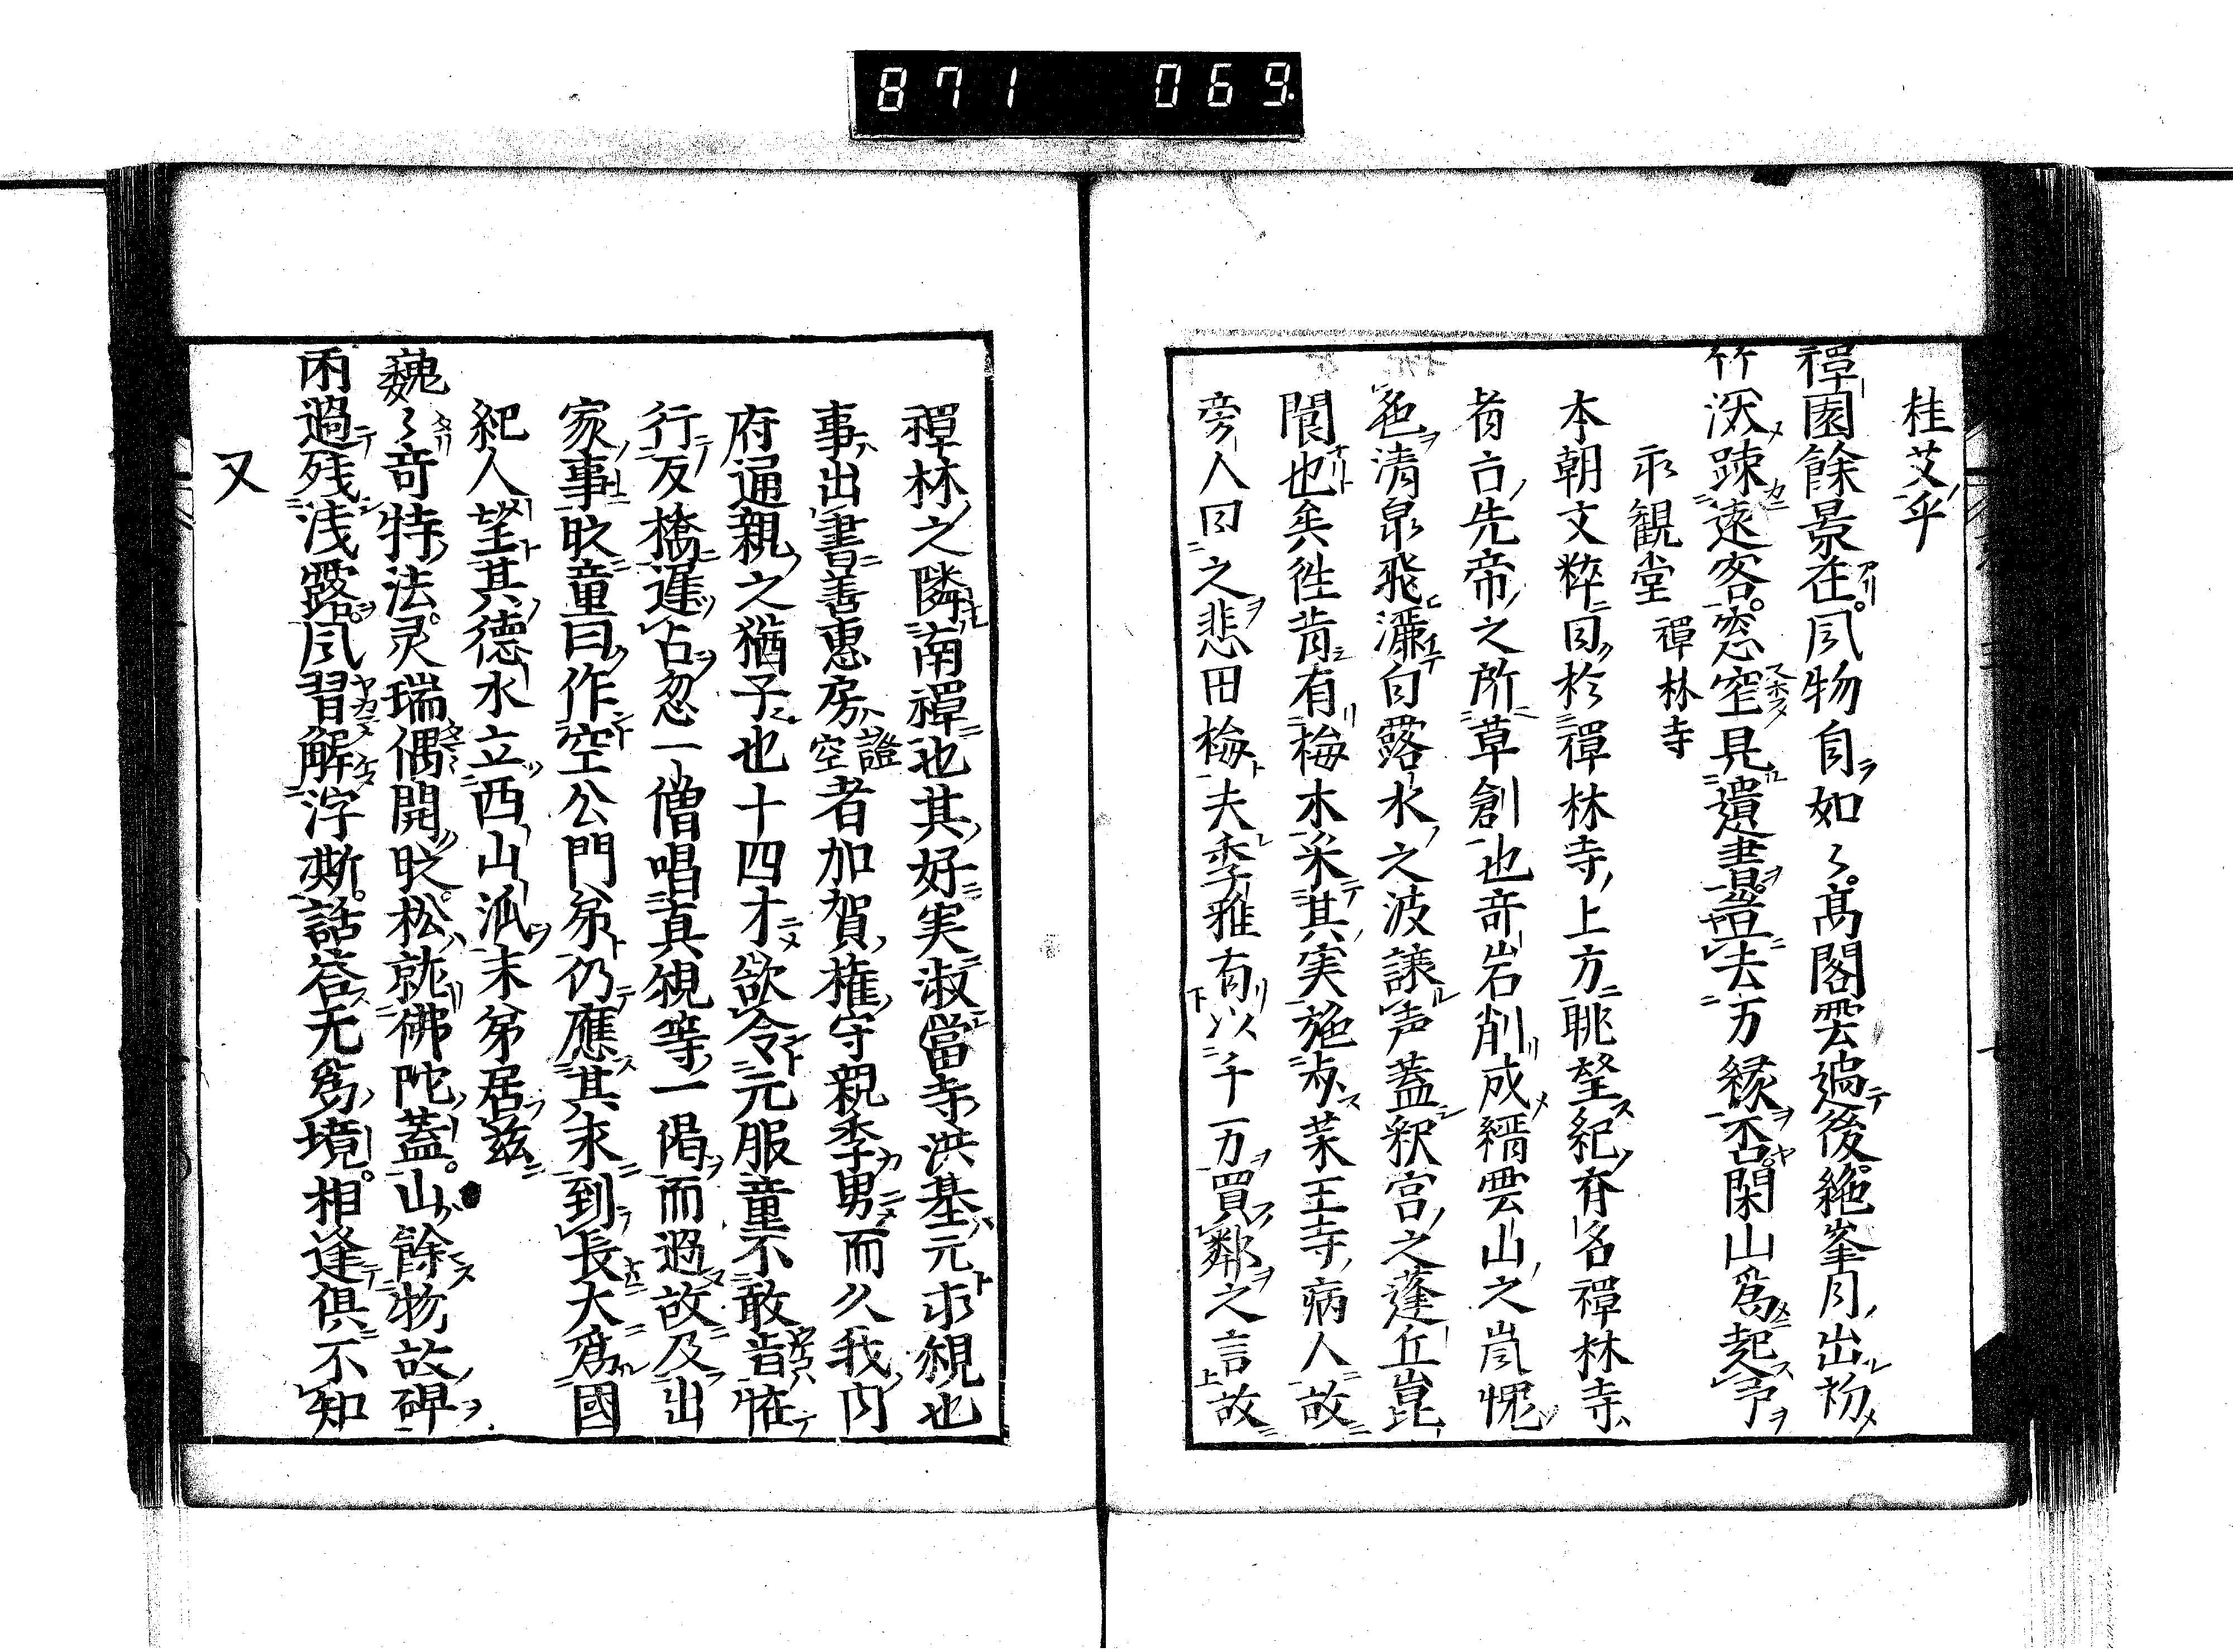 871 069.
桂艾乎
禪園餘景在風物自如〻高閣雲過後絶峯月出初
竹深疎遠客窓窄見遺書盖去方縁丕閑山爲起予
永観堂 禪林寺
本朝文粋曰於禪林寺上方眺望紀斉名禪林寺
者古先帝之所草創也奇岩削成縉雲山之嵐愧
色清泉飛灑白露水之波譲声蓋釈宮之蓬丘崑
閬也矣徃昔有梅木采其実施薬王寺病人故
旁人曰之悲田梅夫季雅有以千万買鄰之言故
禪林之隣南禪也其好実淑當寺洪基元求観也
事出書善恵房證空者加賀権守親季男而久我内
府通親之猶子也十四才欲令元服童不敢肯怪
行反橋遅占忽一僧唱真観等一偈而過故及出
家事眎童曰作空公門弟仍應其求到長大爲國
紀人望其德水立西山派末弟居茲
巍〻奇特法灵瑞偶開眎松就佛陀蓋山餘物故碑
雨過残浅露風習解浮撕話答无為境相逢俱不知
又